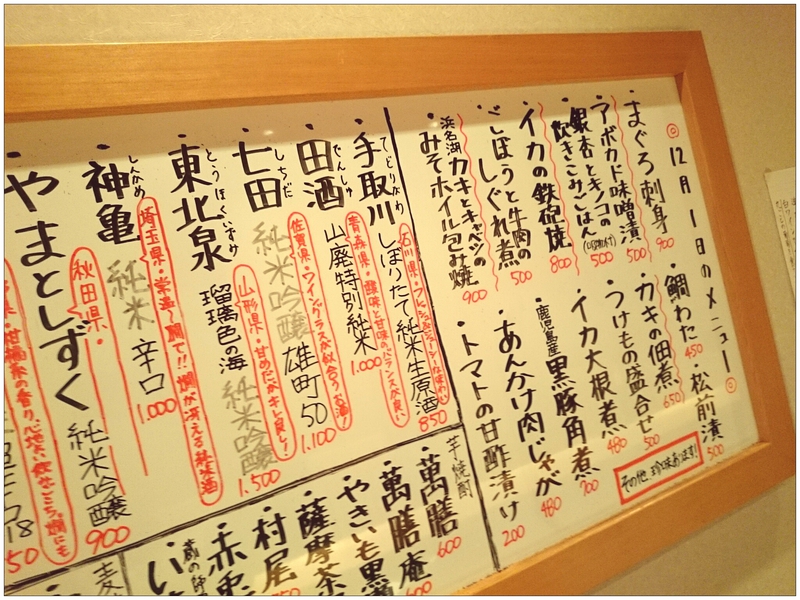 ◎12月1日のメニュー◎
・まぐろ刺身 900
・アボカド味噌漬 500
・銀杏とキノコの
炊きこみごはん 500
・イカの鉄砲焼 800
・ごぼうと牛肉の
しぐれ煮 500
・浜名湖カキとキャベツの
みそホイル包み焼 900
・鯛わた 450
・松前漬 500
・カキの佃煮 650
・うけもの盛合せ 500
・イカ大根煮 480
・鹿児島産黒豚角煮 700
・あんかけ肉じゃが 480
・トマトの甘酢漬け 200
その他、珍味あります!
・手取川 しぼりたて純米生原酒 850
てどりがわ
石川県・フレッシュ&ジューシーな味わい
・田酒 山廃特別純米 1.000
でんしゅ
青森県・酸味と甘味のバランスが良い
・七田 純米吟醸 雄町50 1.100
しちだ
佐賀県・ワイングラスが似合うお酒!
・東北泉 瑠璃色の海 純米吟醸 1.500
とうほくいずみ
山形県・甘めだがキレ良し!
・神亀 純米 辛口 1.000
しんかめ
埼玉県・常温〜燗で!!燗が冴える純米酒
・やまとしずく 純米吟醸 900
秋田県・
芋焼酎
・萬膳 600
・萬膳庵
・やきいも黒
・薩摩茶
・村尾
・赤兎
蔵の師